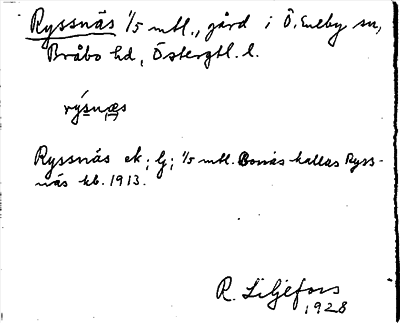 Ryssnäs 1/5 mtl., gård i Ö. Eneby sn,
Bråbo hd, Östergtl. l.
rýsnæs
Ryssnäs ek; lj; 1/5 mtl. Bonäs kallas Ryss-
näs kb. 1913.
R. Liljefors
1928